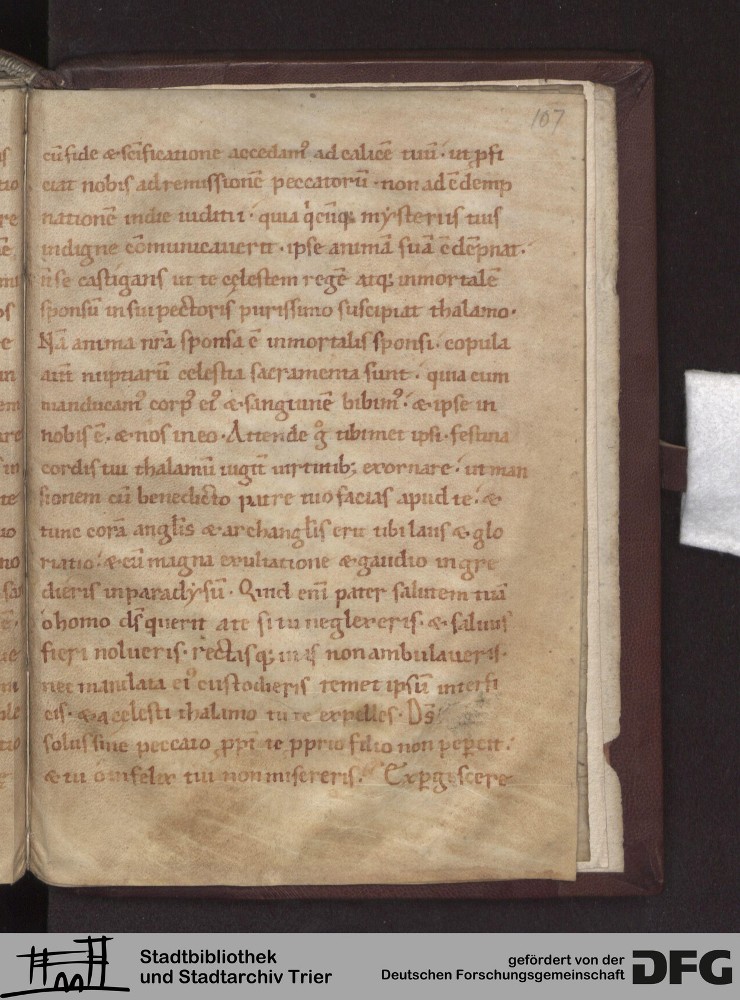 107
cū fide & scīficatione accedam᾿ ad calicē tuū · ut ꝓfi
ciat nobis ad remissionē peccatorū · non ad ēdemp
nationē in die iuditii · quia q̇cūq; mẏsteriis tuis
indigne cōmunicauerit · ipse animā suā ēdēpnat ·
castigans ut te cęlestem regē atq; inmortalē
sponsū in sui pectoris purissimo suscipiat thalamo ·
Nā anima nr̄a sponsa ē inmortalis sponsi · copula
aut̄ nuptiarū celestia sacramenta sunt · quia cum
manducam᾿ corp᾿ ei᾿ & sanguinē bibim᾿ · & ipse in
nobis ē · & nos in eo · Attende g̊ tibimet ipsi · festina
cordis tui thalamū iugit̄ uirtutib; exornare · ut man
sionem cū benedicto patre tuo facias apud te · &
tunc corā angl̄is & archangl̄is erit tibi laus & glo
riatio · & cū magna exultatione & gaudio ingre
dieris in paradẏsū · Quid enī pater salutem tuā
o homo ds̄ querit a te si tu neglexeris · & saluus
fieri nolueris · rectasq; uias non ambulaueris ·
nec mandata ei᾿ custodieris temet ipsū interfi
cis · & a celesti thalamo tu te expelles · Ds̄
solus sine peccato ꝓpt̄ te ꝓprio filio non peꝑcit ·
& tu o infelix tui non misereris · Exꝑgiscere
Stadtbibliothek
und Stadtarchiv Trier
gefördert von der
Deutschen Forschungsgemeinschaft
DFG